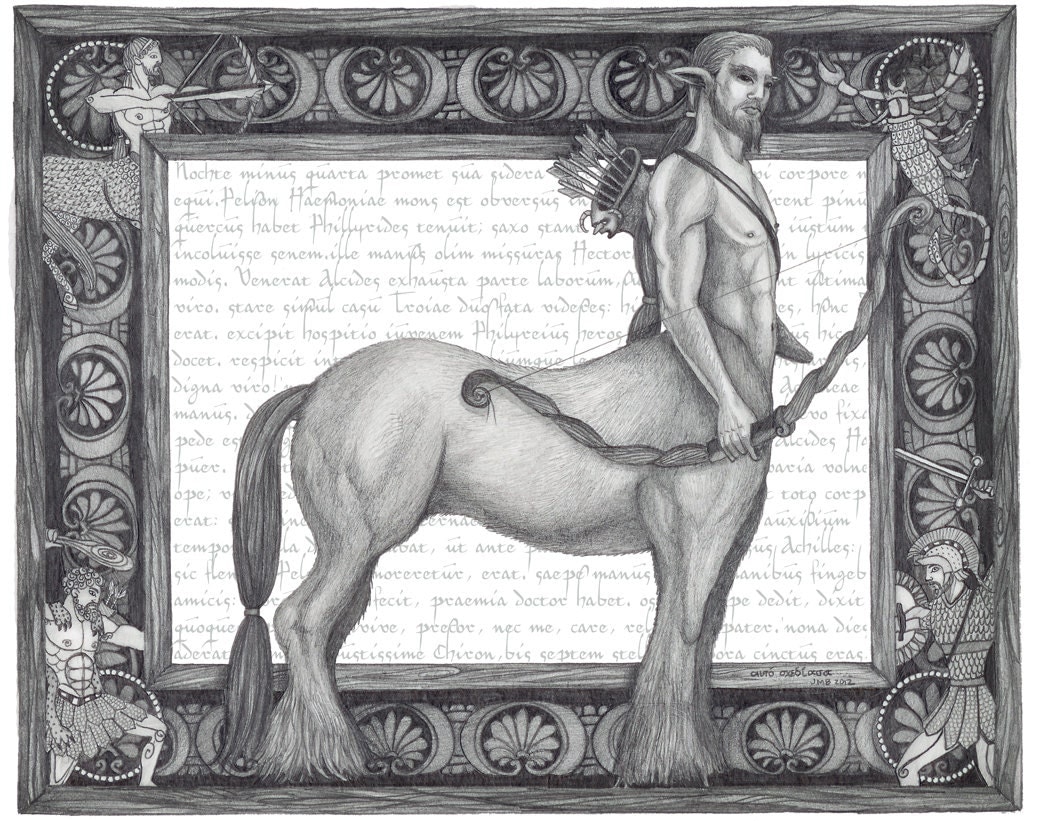 Nochte minus quarta promet sua sidera pi corpore m
equi. Pelion Haemoniae mons est obversus in rent pinu
quercus habet Phillyrides tenuit; saxo stant iustum
incoluisse senem. ille manus olim missuras Hector in lyricis
modis. Venerat Alcides exhausta parte laborum, nt ultima
viro. stare simul casu Troiae duo fata videres: hinc
erat. excipit hospitio iuvenem Philyreius heros hic
docet. respicit int umque le
digna viro!
manus, vo fixa
pede es Alcides Ha
puer. paria vulne
ope; toto corp
erat: auxilium
tempo ebat, ut ante p us Achilles:
sic flen Pel moreretur, erat. saepe manus anibus fingeb
amicis: fecit, praemia doctor habet. os pe dedit, dixit
quoque vive, precor, nec me, care, re pater. nona die
aderat ustissime Chiron, bis septem stel pora cinctus eras.
JMB 2012